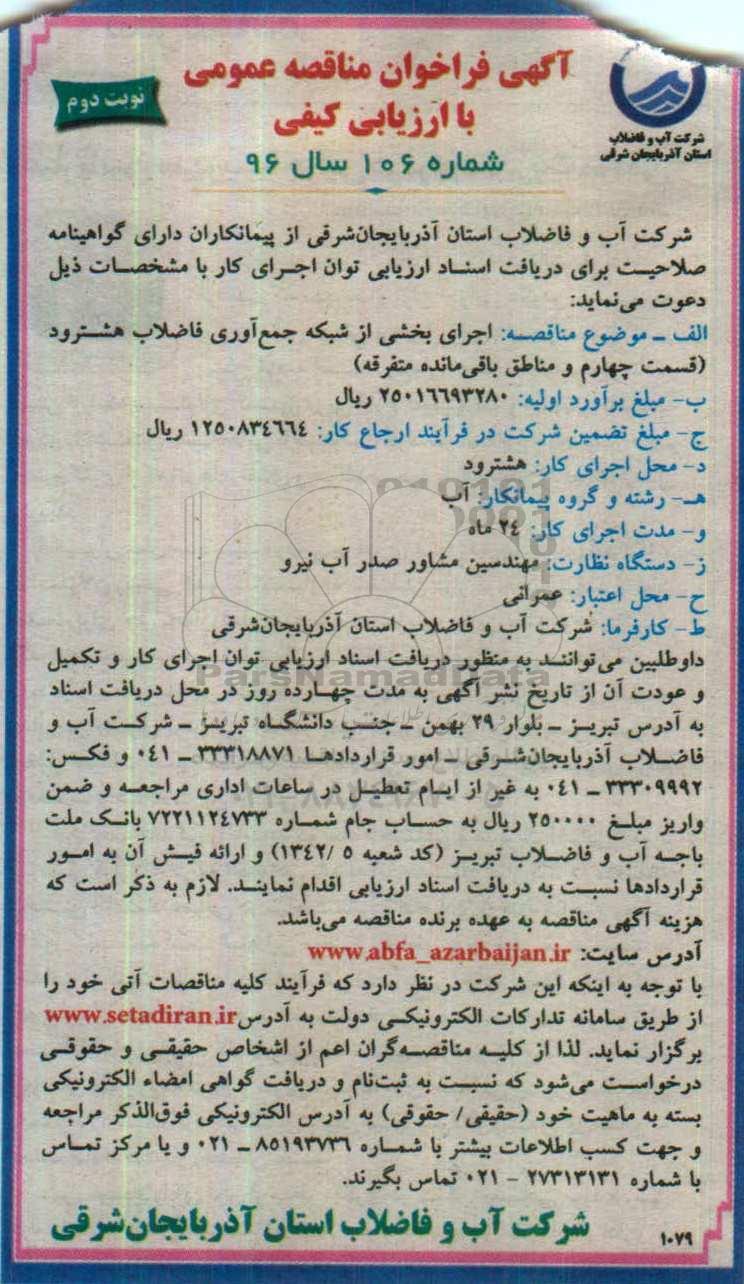 آگهی فراخوان مناقصه عمومی
با ارزیابی کیفی
شماره ۱۰۶ سال ۹۶
نوبت دوم
شرکت آب و فاضلاب
استان آذربایجان شرقی
شرکت آب و فاضلاب استان آذربایجان‌شرقی از پیمانکاران دارای گواهینامه
صلاحیت برای دریافت اسناد ارزیابی توان اجرای کار با مشخصات ذیل
دعوت می‌نماید:
الف ـ موضوع مناقصه: اجرای بخشی از شبکه جمع‌آوری فاضلاب هشترود
(قسمت چهارم و مناطق باقی‌مانده متفرقه)
ب- مبلغ برآورد اولیه: ۲۵۰۱۶۶۹۳۲۸۰ ریال
ج- مبلغ تضمین شرکت در فرآیند ارجاع کار: ۱۲۵۰۸۳٤٦٦٤ ریال
د- محل اجرای کار: هشترود
هـ- رشته و گروه پیمانکار: آب
و- مدت اجرای کار: ۲٤ ماه
ز- دستگاه نظارت: مهندسین مشاور صدر آب نیرو
ح- محل اعتبار: عمرانی
ط- کارفرما: شرکت آب و فاضلاب استان آذربایجان‌شرقی
داوطلبین می‌توانند به منظور دریافت اسناد ارزیابی توان اجرای کار و تکمیل
و عودت آن از تاریخ نشر آگهی به مدت چهارده روز در محل دریافت اسناد
به آدرس تبریز ـ بلوار ۲۹ بهمن ـ جنب دانشگاه تبریز ـ شرکت آب و
فاضلاب آذربایجان‌شرقی ـ امور قراردادها ۳۳۳۱۸۸۷۱ ـ ۰٤۱ و فکس:
۳۳۳۰۹۹۹۲ ـ ۰٤۱ به غیر از ایام تعطیل در ساعات اداری مراجعه و ضمن
واریز مبلغ ۲۵۰۰۰۰ ریال به حساب جام شماره ۷۲۲۱۱۲٤۷۳۳ بانک ملت
باجه آب و فاضلاب تبریز (کد شعبه ۵ /۱۳٤۲) و ارائه فیش آن به امور
قراردادها نسبت به دریافت اسناد ارزیابی اقدام نمایند. لازم به ذکر است که
هزینه آگهی مناقصه به عهده برنده مناقصه می‌باشد.
آدرس سایت: www.abfa_azarbaijan.ir
با توجه به اینکه این شرکت در نظر دارد که فرآیند کلیه مناقصات آتی خود را
از طریق سامانه تدارکات الکترونیکی دولت به آدرس www.setadiran.ir
برگزار نماید. لذا از کلیه مناقصه‌گران اعم از اشخاص حقیقی و حقوقی
درخواست می‌شود که نسبت به ثبت‌نام و دریافت گواهی امضاء الکترونیکی
بسته به ماهیت خود (حقیقی/ حقوقی) به آدرس الکترونیکی فوق‌الذکر مراجعه
و جهت کسب اطلاعات بیشتر با شماره ۸۵۱۹۳۷۳۶ ـ ۰۲۱ و یا مرکز تماس
با شماره ۲۷۳۱۳۱۳۱ - ۰۲۱ تماس بگیرند.
شرکت آب و فاضلاب استان آذربایجان‌شرقی
۱۰۷۹
ParsNamadData